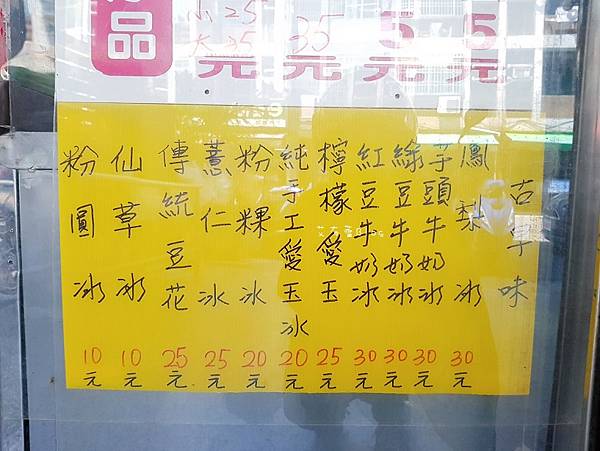 品
小25
大35
元
35
元
5
元
5
元
古早味
鳳梨冰 30元
芋頭牛奶冰 30元
綠豆牛奶冰 30元
紅豆牛奶冰 30元
檸檬愛玉 25元
純手工愛玉冰 20元
粉粿冰 20元
薏仁冰 25元
傳統豆花 25元
仙草冰 10元
粉圓冰 10元